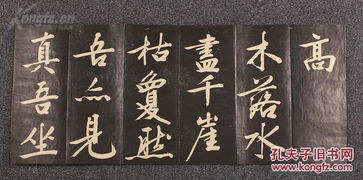 高
木落水
盡千崖
枯夐然
吾亦見
真吾坐
Kongfz.com
孔夫子旧书网
KONGFZ.COM